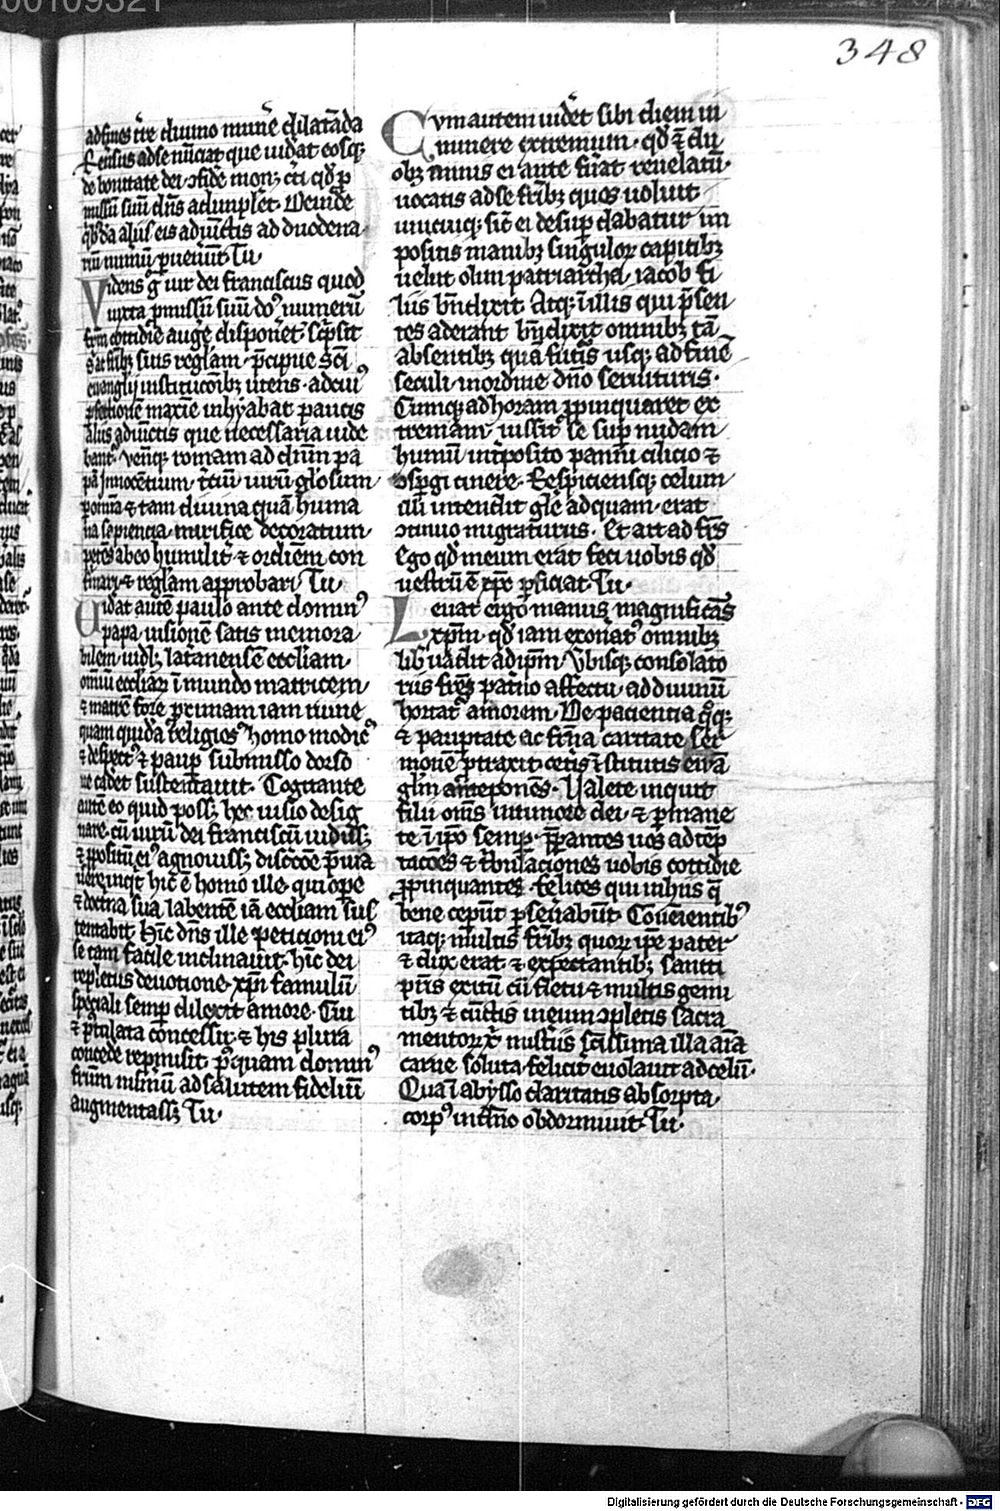 00109321
348
ad fines tr̄e diuino mune᷒ dilatāda
Reūsus ad se nūciat que uid'at eosq;
de bonitate dei ɔfide mon; c̄ti qđ p
missū suū dn̄s adimplet᷒ Deinde
q'b'da alijs eis adiūctis ad duodena
riū numū puenit Tu
Videns g͛ uir dei franciscus quod
iuxta pmissū suū do᷒ numerū
frm̄ cottidie auge᷒ disponet᷒ sc͛psit
s' ac frīb; suis regl̄am p͛cipue sc̄i
euanglij institucōib; utens ad cui᷒
pfectionē maxīe inhyabat paucis
alijs adiūctis que necessaria uide
bant᷒ venq; romam ad dn̄um pa
pā Innocentium t͛ciū uirū gl̄osum
& tam diuina quā huma
na sapiencia mirifice decoratum
petēs ab eo humilit᷒ & ordiēm con
firmari & regl̄am approbari Tu
Uid'at autē paulo ante domin᷒
papa uisionē satis memora
bilem uidl; lat͛anensē eccl̄iam
om̄iū eccl̄iaꝝ ī mundo matricem
& matrē fore primam iam iune
quam quidā religios᷒ homo modic᷒
& despect᷒ & paup submisso dorso
ne cadet᷒ sustentauit Cogitante
autē eo quid poss; hec uisio desig
nare cū uirū dei franciscū uidiss;
& ppositū ei᷒ agnouiss; disc͛cōe p͛uia
uere inq͛t hic ē homo ille qui ope
& doctrīa sua labentē iā eccl̄iam sus
tentabit Hīc dn̄s ille peticioni ei᷒
se tam facile inclinauit hīc dei
repletus deuotione xp̄i famulū
speciali semp dilexit amore Tu
& p͛tulata concessit & his plura
concede᷒ repmisit p᷒quam domin᷒
frūm minīū ad salutem fideliū
augmentass; Tu
Cvm autem uid'et sibi diem in
minere extremum qđ & du
ob; annis ei ante fūat reuelatū
uocatis ad se frīb; quos uoluit
unicuiq; sic̄ ei desup dabatur im
positis manib; singuloꝝ capitib;
uelut olim patriarcha iacob fi
liis bn̄dixit Atq; ī illis qui p͛sen
tes aderant bn̄dixit omnib; tā
absentib; quā futīs usq; ad finē
seculi in ordine dn̄o seruituris
Cumq; ad horam ppinquaret ex
tremam iussit se sup nudam
humū int͛posito pannū cilicio &
ɔspgi cinere Respiciensq; celum
cū intendit gl̄e ad quam erat
ɔtinuo migraturus Et ait ad fr̄s
Ego qđ meum erat feci uobis qđ
uestrū ē xp̄c pficiat Tu
Leuat ergo manus magnificās
xp̄m qđ iam exon͛at᷒ omnib;
lib̄ uadit ad ip̄m Vbisq; consolato
riis fr̄es pat͛no affectu ad diuinū
hortat᷒ amorem De paciencia q᷒q;
& pauptate ac frīna caritate ser
monē ptraxit cet͛is ī stitutis ewā
gl̄m anteponēs Valete inquit
filii om̄s in timore dei & pmane
te ī ip̄o semp ppantes uos ad tēp
tacōes & t͛bulaciones uobis cottidie
ppinquantes felices qui in hiis q̄
bene cepūt pseuabūt Conueientib᷒
itaq; multis frīb; quoꝝ ip̄e pater
& dux erat & expectantib; sancti
pr̄is exitū cū fletu & multis gemi
tib; & cūctis in eum ɔpletis sacra
mentoꝝ xp̄i mist͛iis sc̄issima illa aīa
carne soluta feliciť euolauit ad celū
Qua ī abysso claritatis absorpta
corp᷒ in dn̄o obdormiuit Tu
Digitalisierung gefördert durch die Deutsche Forschungsgemeinschaft - DFG